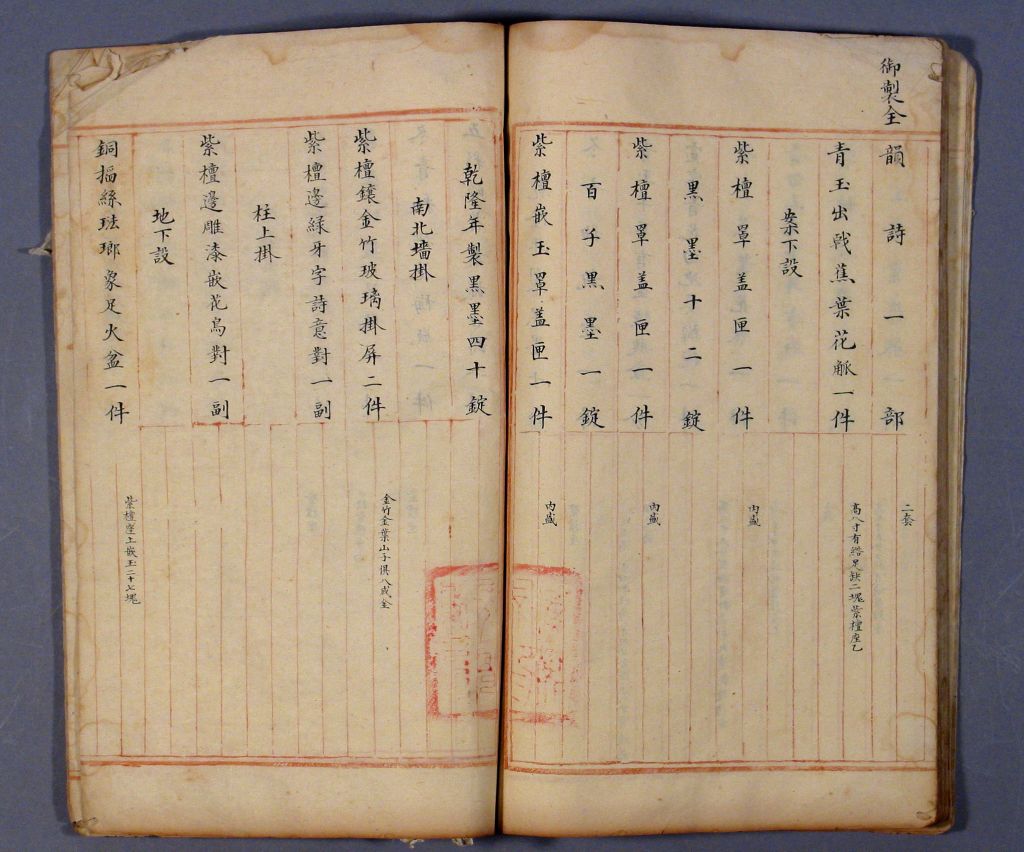 御製全
韻詩一部
二套
青玉出戟蕉葉花觚一件
高八寸有綹足缺二塊紫檀座乙
案下設
紫檀罩盖匣一件
内盛
黑墨十二錠
紫檀罩盖匣一件
内盛
百子黑墨一錠
紫檀嵌玉罩盖匣一件
内盛
乾隆年製黑墨四十錠
南北墻掛
紫檀鑲金竹玻璃掛屏二件
金竹金葉山子俱八成金
紫檀邊緑牙字詩意對一副
柱上掛
紫檀邊雕漆嵌花鳥對一副
地下設
銅掐絲琺瑯象足火盆一件
紫檀座上嵌玉二十七塊